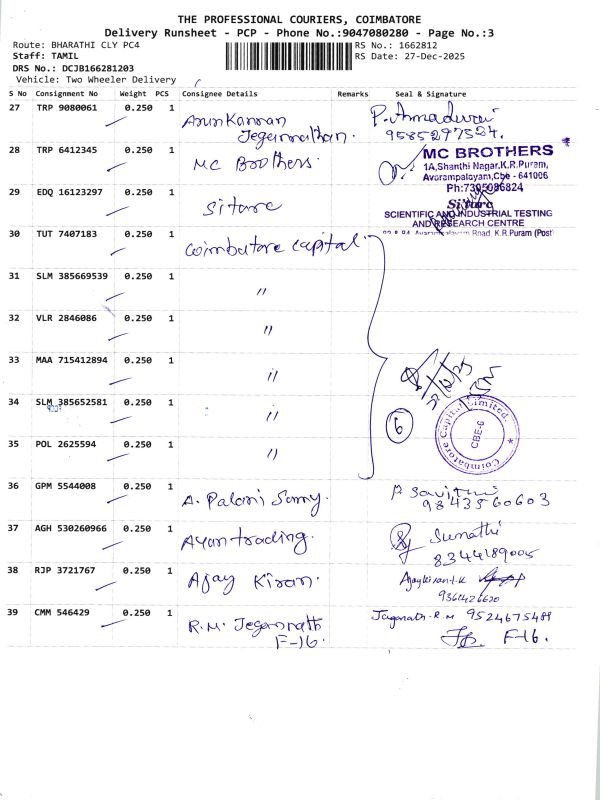 THE PROFESSIONAL COURIERS, COIMBATORE
Delivery Runsheet - PCP - Phone No.:9047080280 - Page No.:3
Route: BHARATHI CLY PC4 RS No.: 1662812
Staff: TAMIL RS Date: 27-Dec-2025
DRS No.: DCJB166281203
Vehicle: Two Wheeler Delivery
S No Consignment No Weight PCS Consignee Details Remarks Seal & Signature
27 TRP 9080061 0.250 1 Arunkannan P. Amadurai
Jegannathan. 9585297524.
28 TRP 6412345 0.250 1 MC Brothers. MC BROTHERS
1A,Shanthi Nagar,K.R.Puram,
Avarampalayam,Cbe - 641006
Ph:7395086824
29 EDQ 16123297 0.250 1 Sitarc Sitarc
SCIENTIFIC AND INDUSTRIAL TESTING
AND RESEARCH CENTRE
Road K.R.Puram (Post)
30 TUT 7407183 0.250 1 Coimbatore capital.
31 SLM 385669539 0.250 1 "
32 VLR 2846086 0.250 1 "
33 MAA 715412894 0.250 1 "
34 SLM 385652581 0.250 1 " 6
Coimbatore Capital Limited.
CBE-6
35 POL 2625594 0.250 1 "
36 GPM 5544008 0.250 1 A. Palani Samy. P Savithri
9843560603
37 AGH 530260966 0.250 1 Ayan trading. Sumathi
8344189005
38 RJP 3721767 0.250 1 Ajay Kiran. Ajaykiran.K
9361426620
39 CMM 546429 0.250 1 R.M. Jegannath Jaganath.R.M 9524675489
F-16. F-16.